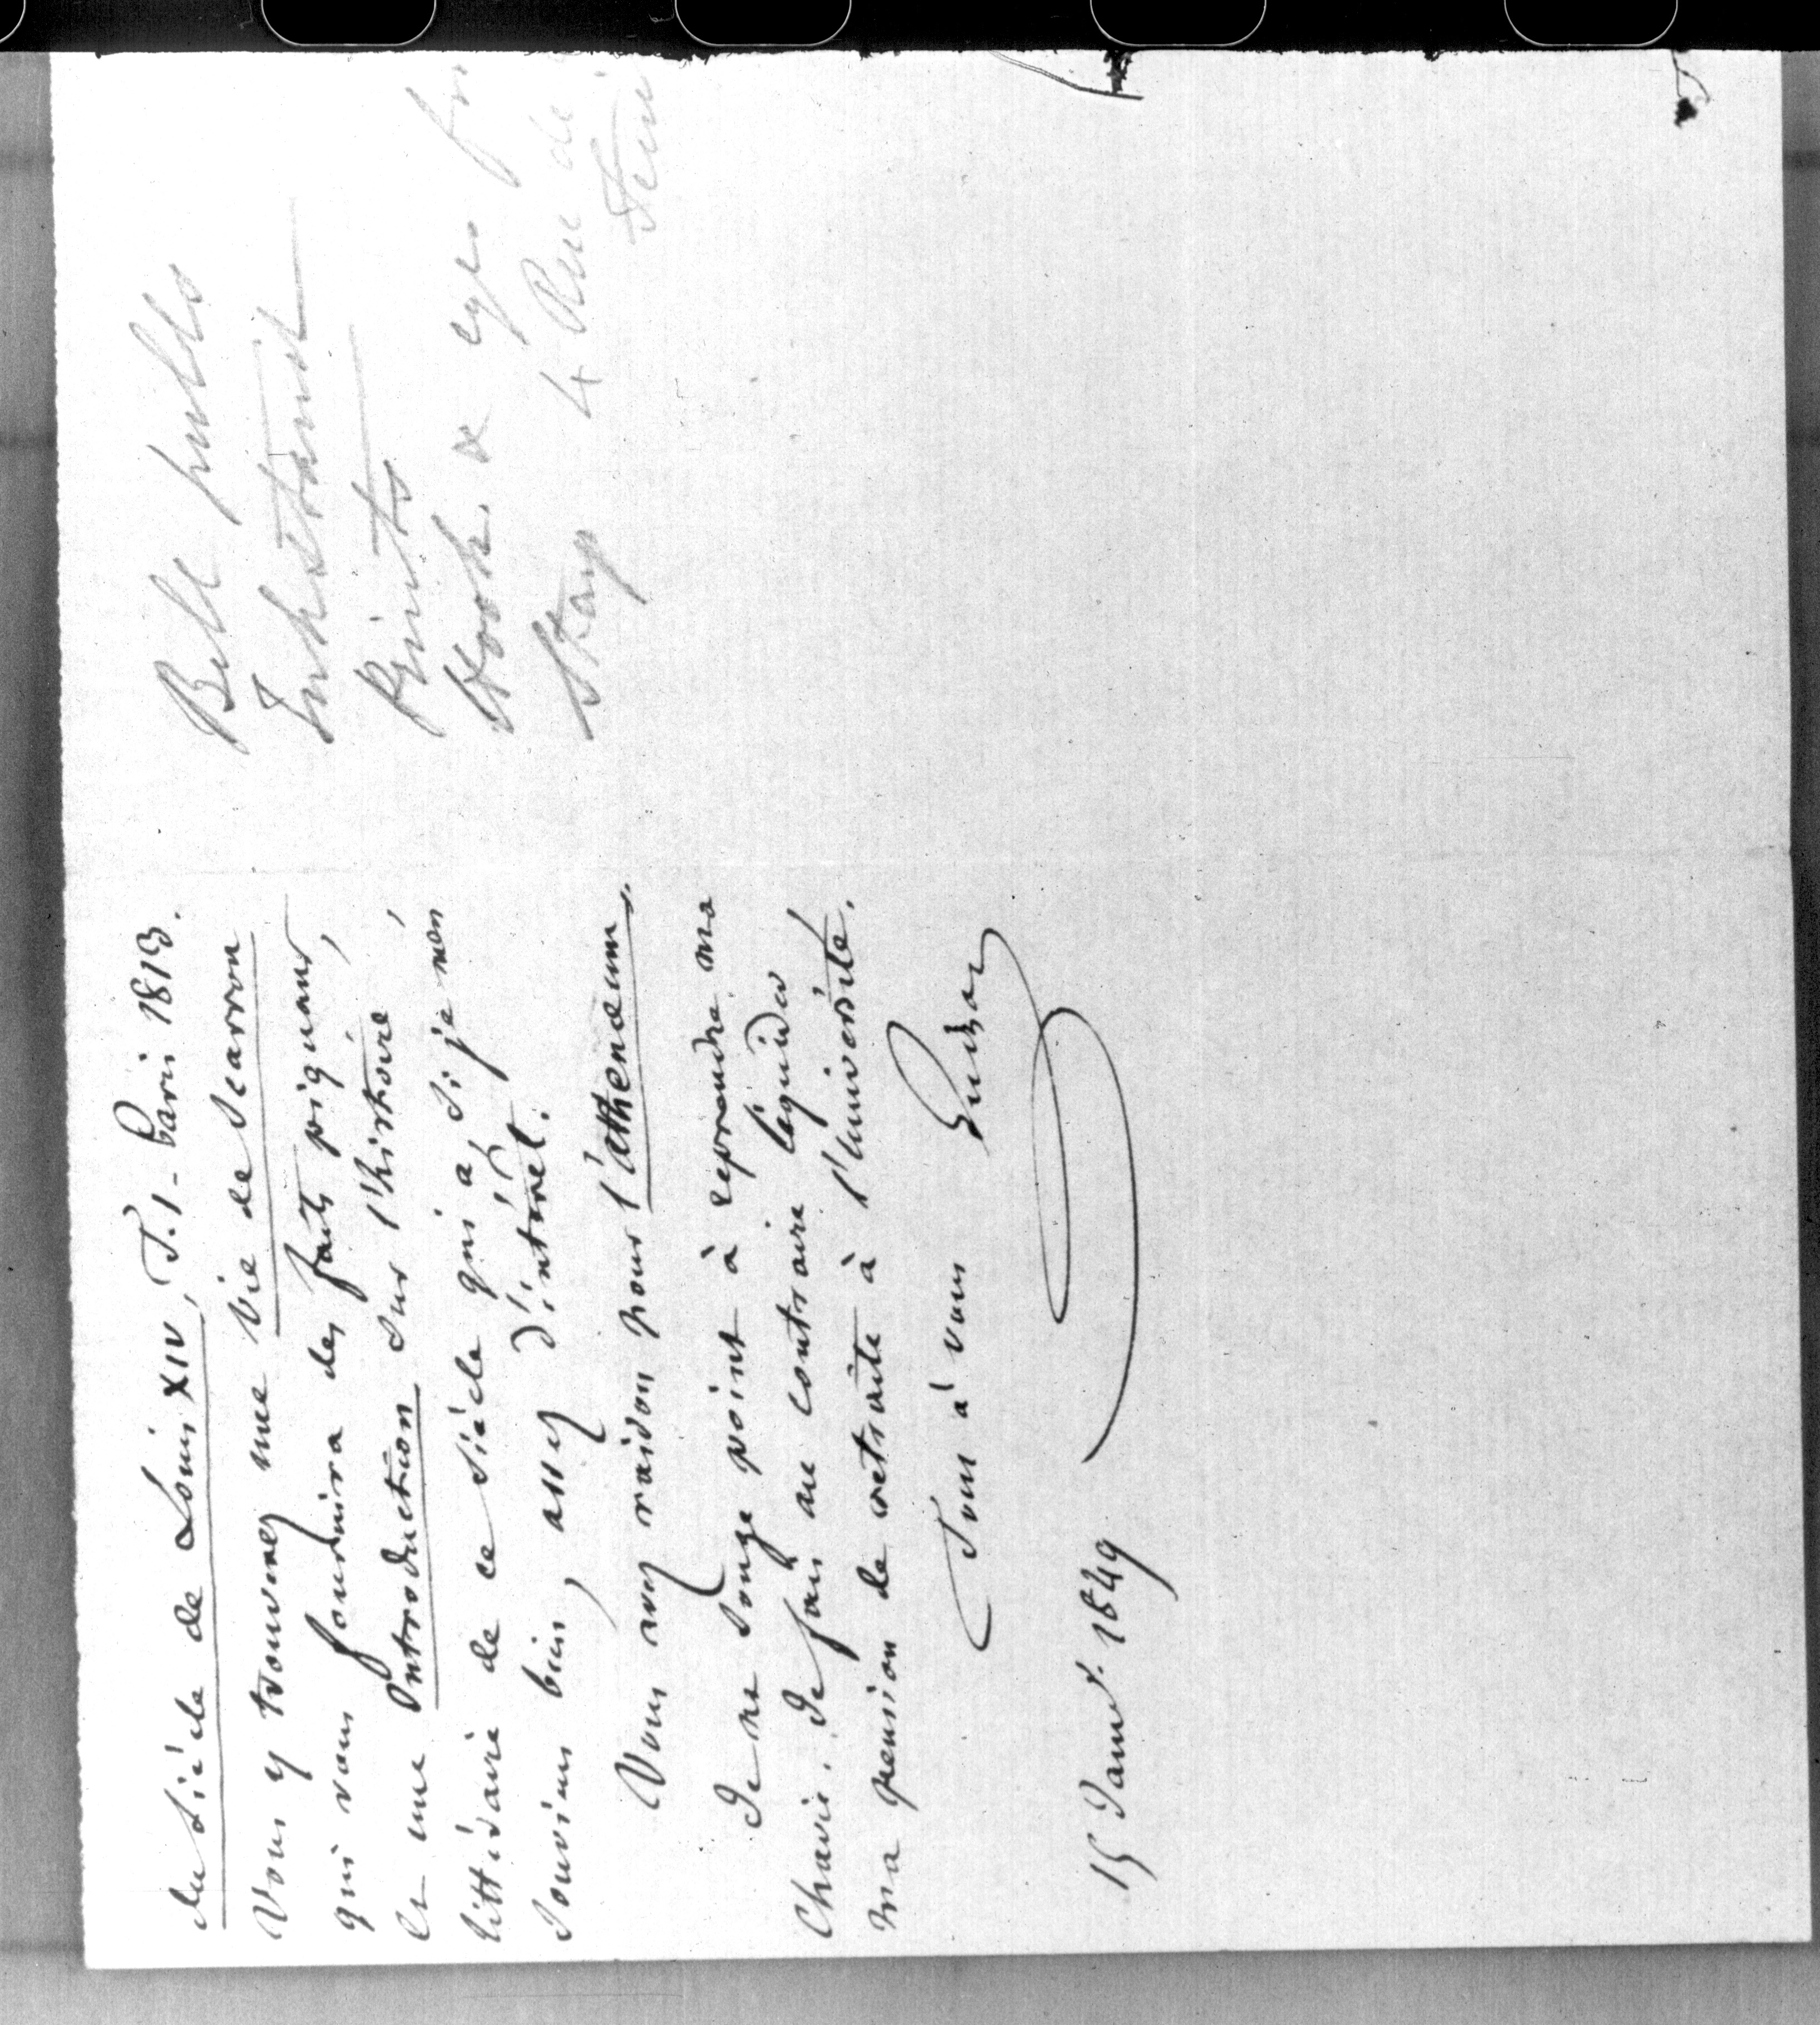 du Siècle de Louis XIV, T. 1 - Paris 1813.
Vous y trouverez une Vie de Scarron
qui vous fournira des faits piquans,
et une Introduction sur l'histoire
littéraire de ce siècle qui a, si je m'en
souviens bien, assez d'intérêt.
Vous avez raison pour l'athenæum.
Je ne songe point à reprendre ma
Chaire. Je fais au contraire liquider
ma pension de retraite à l'université.
Tout à vous
Guizot
15 Janv. 1849
Bill
Inkstand
Prints
Book. &
4 Rue de